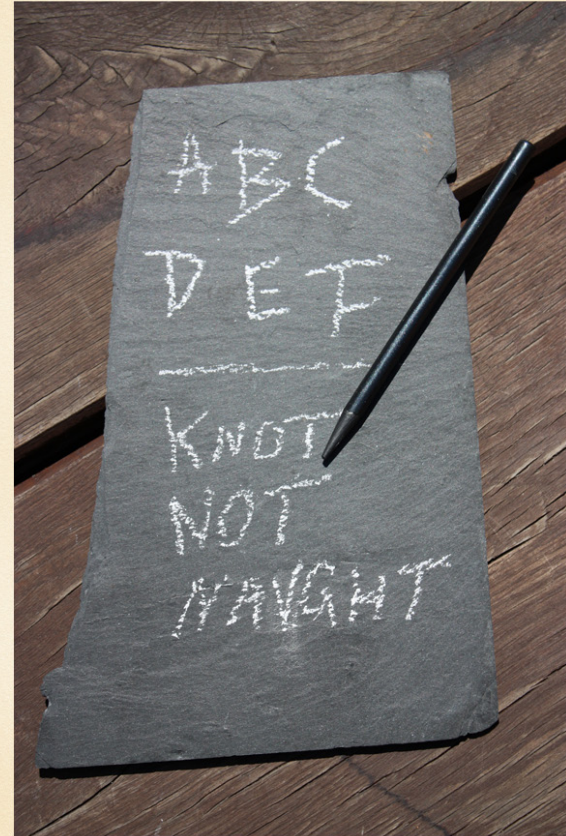 ABC
DEF
KNOT
NOT
NAUGHT